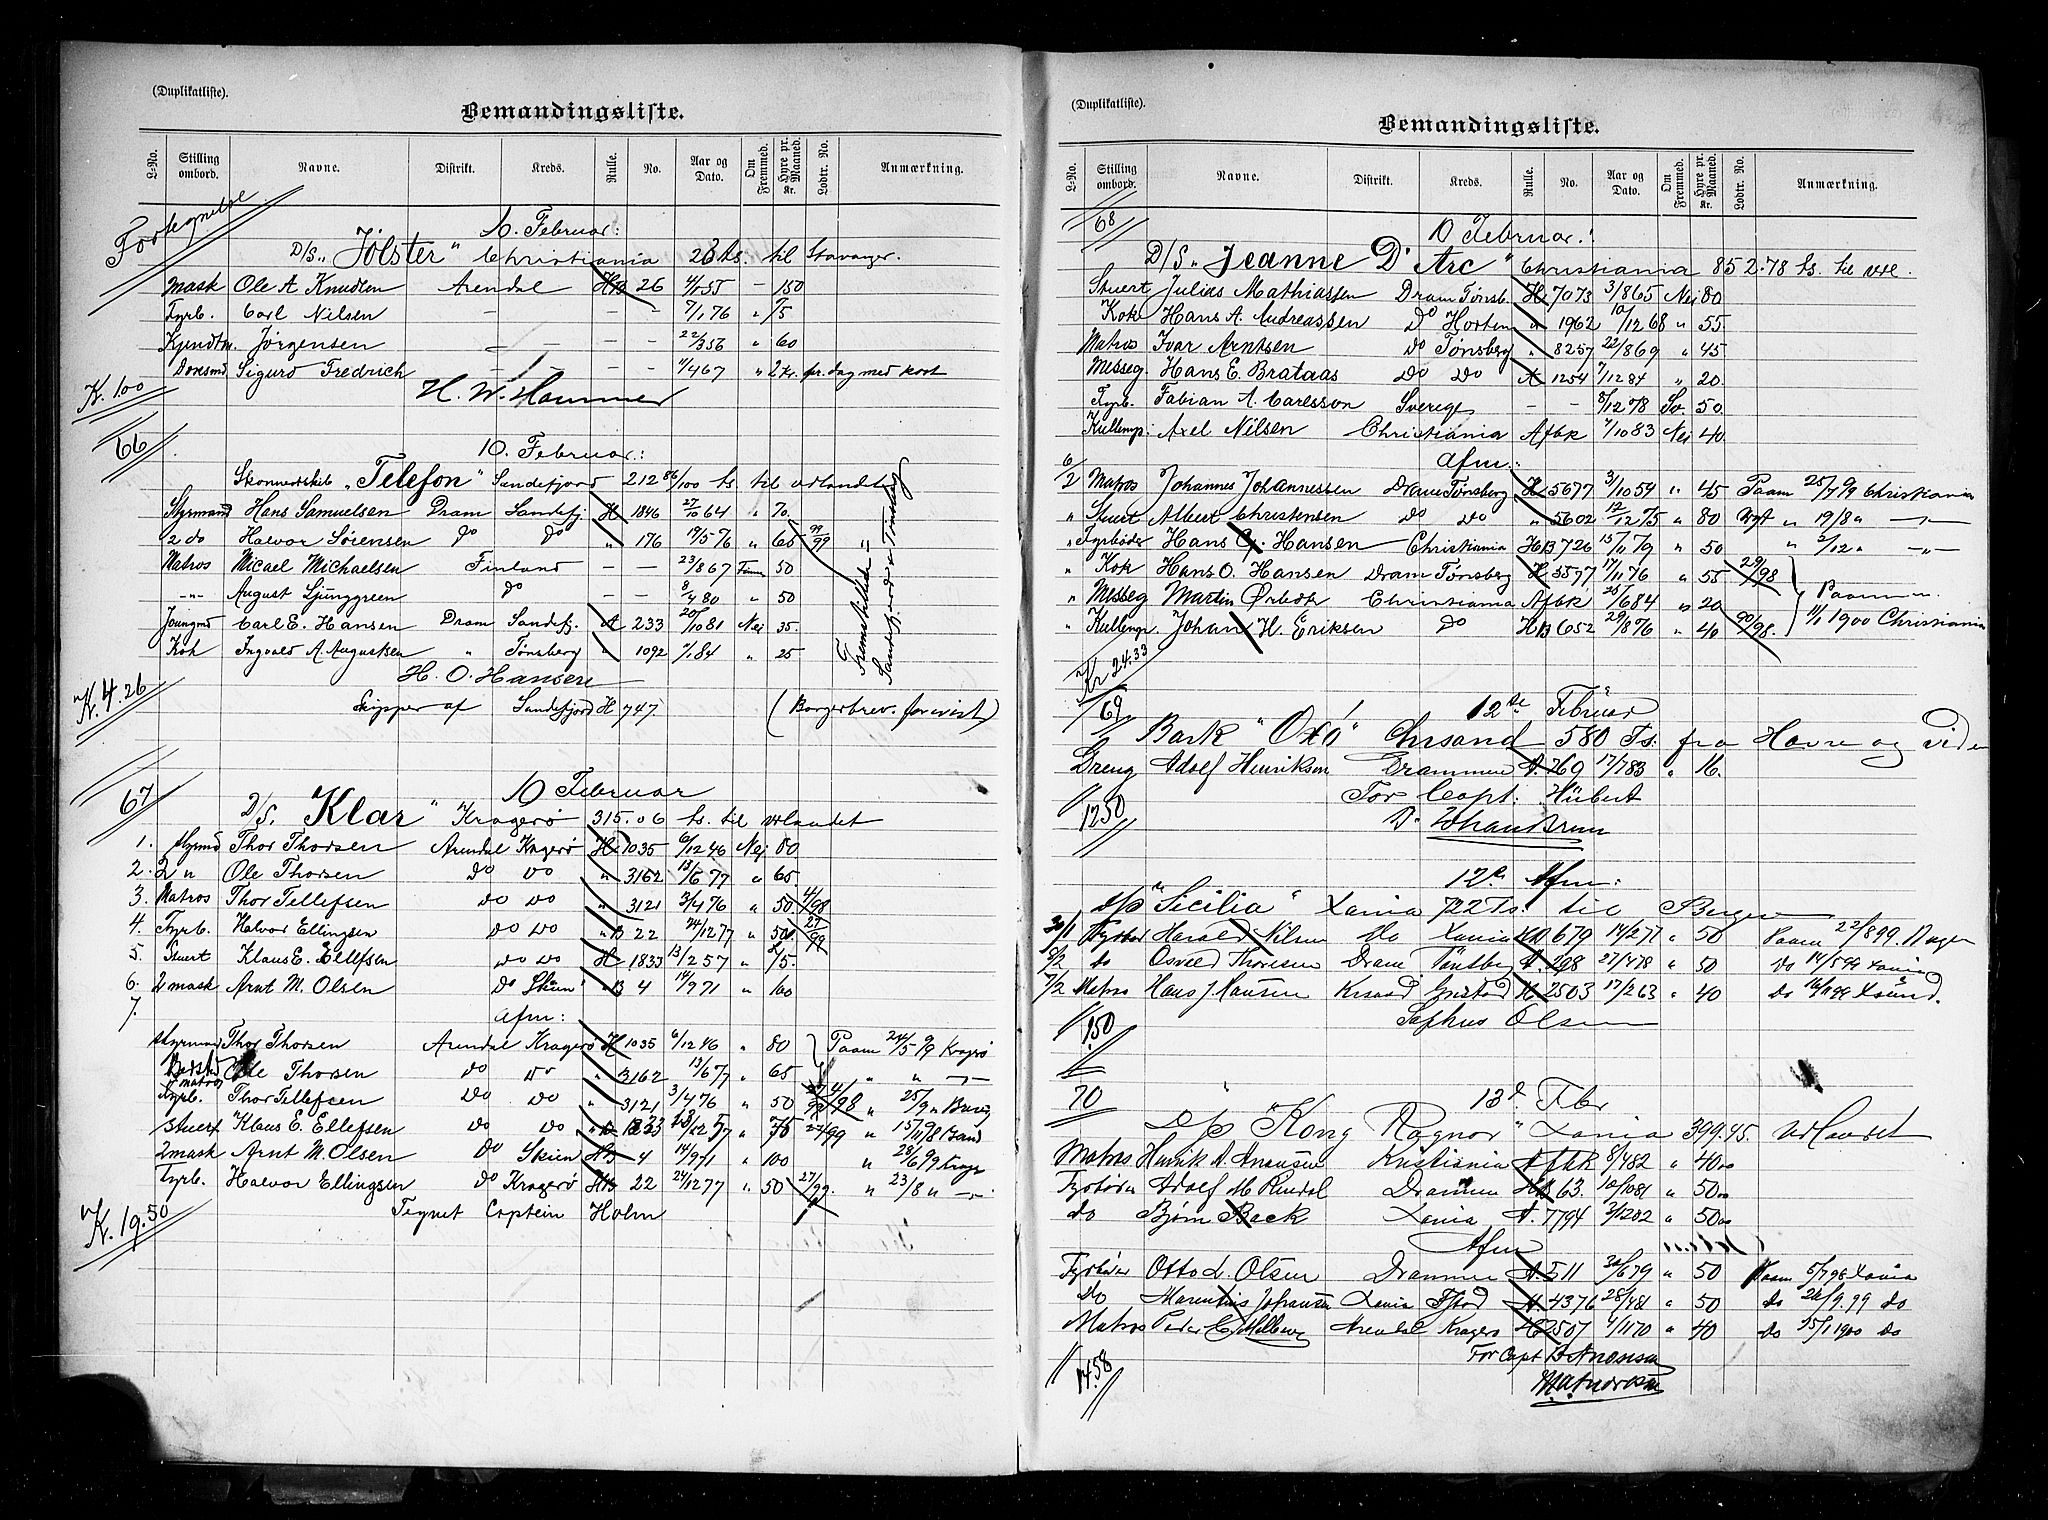 (Duplikatliste).
Bemandingsliste.
L-No. Stilling ombord. Navne. Distrikt. Kreds. Rulle. No. Aar og Dato. Om Fremmed. Hyre pr. Maaned. Kr. Lodtr. No. Anmærkning.
Fortegnelse
10. Februar:
D/S. „Jölster“ Christiania 23 ts. til Stavanger.
Mask Ole A Knudsen Arendal HB 26 4/1 55 – 150
Fyrb. Carl Nilsen – – – – 7/1 76 „ 75
Kjendtm. Jörgensen – – – – 22/3 56 „ 60
Donkmd Sigurd Fredrich – – – – 11/4 67 „ 2 Kr. pr. dag med kost
Kr. 1.00 H. W. Hammer
66
10. Februar:
Skonnertskib „Telefon“ Sandefjord 212 86/100 ts til udlandet
Styrmand Hans Samuelsen Dram Sandefj. H 1846 27/10 64 „ 70.
2 do Halvor Sörensen do do „ 176 19/5 76 „ 65 99/99
Matros Micael Michaelsen Finland – – 23/8 67 Finn 50
–„– August Ljunggreen do – – 8/4 80 „ 50
Joungmd Carl E. Hansen Dram Sandefj. A 233 20/10 81 Nei 35.
Kok Ingvald A. Augustsen „ Tønsberg „ 1092 7/1 84 „ 25
Fremstilledes = Sandefjord & Tønsberg
H. O. Hansen
Kr. 4.26
Skipper af Sandefjord H 747. (Borgerbrev. forevist)
67
10 Februar
D/S. „Klar“ Kragerø 315.06 ts. til udlandet
1. Styrmd Thor Thorsen Arendal Kragerö H 1035 6/12 46 Nej 80
2. 2 „ Ole Thorsen do do „ 3162 13/6 77 „ 65
3. Matros Thor Tellefsen do do „ 3121 3/4 76 „ 50 4/98
4. Fyrb. Halvor Ellingsen do do „B 22 24/12 77 „ 50 27/99
5. Stuert Klaus E. Ellefsen do do H 1833 13/2 57 „ 75.
6. 2 mask Arnt M. Olsen do Skien „B 4 14/9 71 „ 100
7.
Afm:
Styrmand Thor Thorsen Arendal Kragerø H 1035 6/12 46 „ 80 Paam 24/5 99 Kragerø
Ole Thorsen do do „ 3162 13/6 77 „ 65 „ „ –„–
matros Thor Tellefsen do do „ 3121 3/4 76 „ 50 4/98 „ 25/9 „
Stuert Klaus E. Ellefsen do do 1833 „ 75 „ 15/11 98
2 mask Arnt M. Olsen do Skien HB 4 14/9 71 „ 100 „ 28/6 99
Fyrb. Halvor Ellingsen do Kragerø HB 22 24/12 77 „ 50 27/99. „ 23/8 „ –„–
Tegnet Captein Holm
Kr. 19.50
(Duplikatliste).
Bemandingsliste.
L-No. Stilling ombord. Navne. Distrikt. Kreds. Rulle. No. Aar og Dato. Om Fremmed. Hyre pr. Maaned. Kr. Lodtr. No. Anmærkning.
68
10 Februar.:
D/S. „Jeanne D'Arc“ Christiania 852.78 ts. til udl.
Stuert Julius Mathiassen Dram Tønsb. H 7073 3/8 65 Nej 80
Kok Hans A. Andreassen do Horten „ 1962 10/12 68 „ 55.
Matros Ivar Arntsen do Tønsberg „ 8257 22/8 69 „ 45
Messeg Hans E. Brataas do do A 1254 7/12 84 „ 20.
Fyrb. Fabian A. Carlsson Sverige – – 8/12 78 Sv. 50.
Kullemp: Axel Nilsen Christiania Afbk 7/10 83 Nei 40.
Afm.:
6/2 Matros Johannes Johannessen Dram Tønsberg H 5677 3/10 54 „ 45 Paam 25/7 99 Christiania
„ Stuert Albert Christensen do do „ 5602 12/12 75 „ 80 „ 19/8 „ –„–
„ Fyrbøder Hans G. Hansen Christiania HB 726 15/11 79 „ 50 „ 2/12 „ –„–
„ Kok Hans O. Hansen Dram Tønsberg H 3577 17/11 76 „ 55 29/98
„ Messeg Martin Christiania Afbk 25/6 84 „ 20 Paam
„ Kullemp. Johan H. Eriksen do HB 652 29/8 76 „ 40 90/98. 11/1 1900 Christiania
Kr 24.33
69
12te Februar
Bark "Oxö" Chrsand 580 Ts. fra Havre og vider
Dreng Adolf Henriksen Drammen A. 269 17/7 83 „ 16.
For Capt. Hübert
1250
12te Afm:
D/S "Sicilia" Xania 722 Ts. til Bergen
30/1 Fyrbøder Harald Nilsen do Xania HB 679 14/2 71 „ 50 Paam 22/8 99.
3/2 do Osvald Thoresen Dram Tönsbg A. 298 27/4 78 „ 50 do 14/5 99 Xania
7/2 Matros Hans J. Hansen Krsand Grimstad H 2503 17/2 63 „ 40 do Xsand.
Sophus Olsen
150
70
13d. Fbr
D/S "Kong Ragnar" Xania 399.45. Udlandet
Matros Henrik A. Kristiania Afbk 8/4 82 „ 40 00
Fyrbøder Adolf M. Rindal Drammen HB 63. 10/10 81 „ 50 00
do Bjørn Back Xania A. 7794 3/12 82 „ 50 00
Afm
Fyrbøder Otto L. Olsen Drammen A. 511 30/6 79 „ 50 Paam 5/7 98 Xania
do Marentius Johansen Xania A. 4376 28/4 81 „ 50 do 26/9. 99 do
Matros Peder C. Arendal Kragerø H 2507 4/11 70 „ 40 do 15/1 1900 do
For Capt B Andresen
M. Andresen
1458